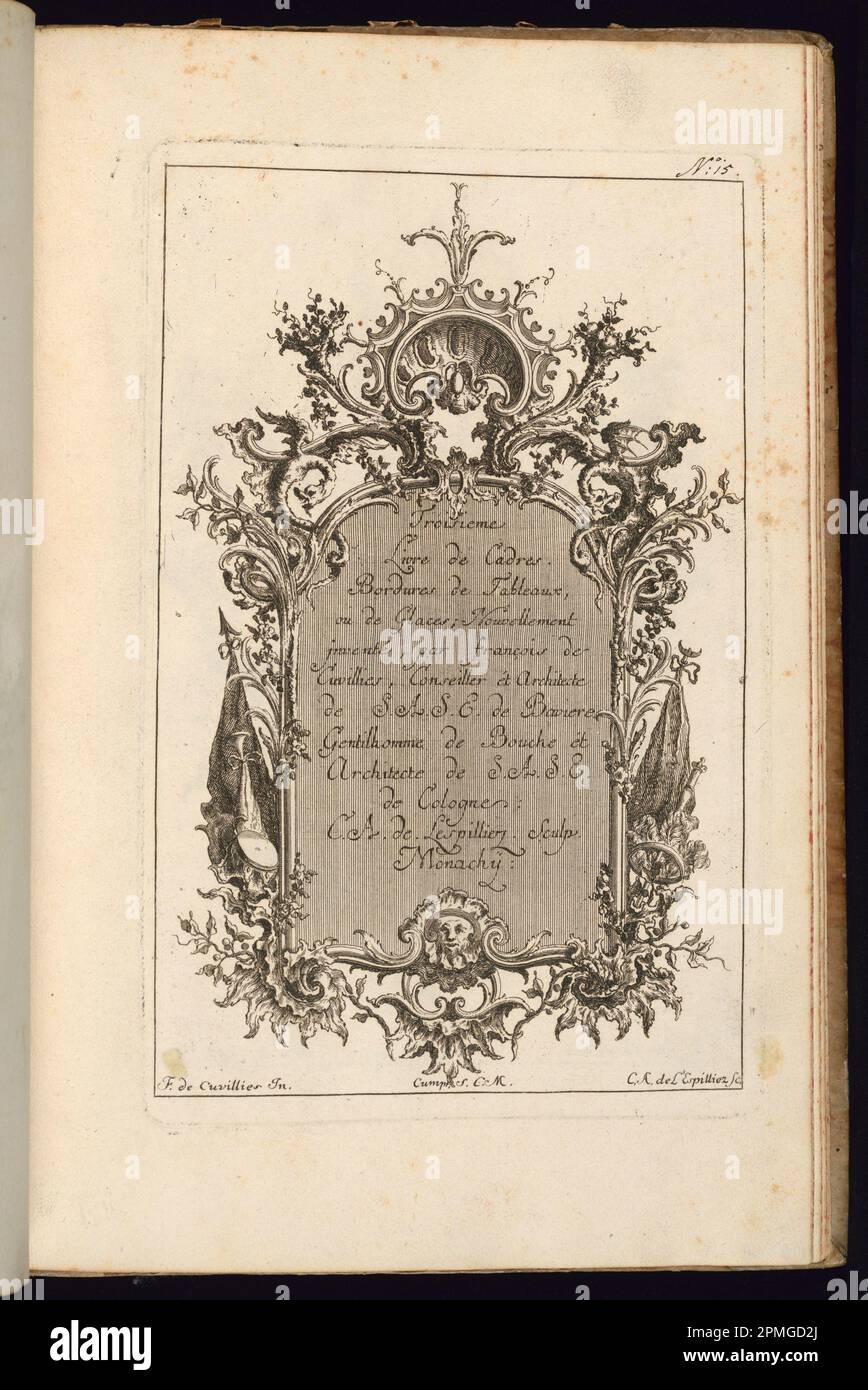 N.º: 15.
Troisieme
Livre de Cadres.
Bordures de Tableaux,
ou de Glaces; Nouvellement
par françois de
Cuvillies, Conseiller et Architecte
de S. A. S. E. de Baviere
Gentilhomme de Bouche et
Architecte de S. A. S. E
de Cologne:
C. A. de Lespilliez. Sculp
Monachij:
F. de Cuvillies In.
Cum pr. S. C. M.
C. A. de L'Espilliez sc.
alamy
Image ID: 2PMGD2J
www.alamy.com